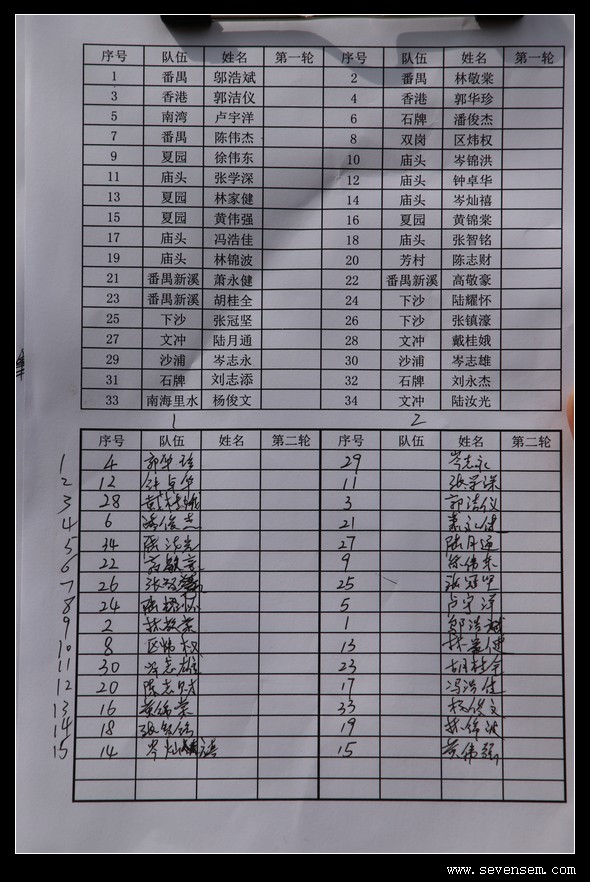 序号 队伍 姓名 第一轮 序号 队伍 姓名 第一轮
1 番禺 邬浩斌 2 番禺 林敬棠
3 香港 郭洁仪 4 香港 郭华珍
5 南湾 卢宇洋 6 石牌 潘俊杰
7 番禺 陈伟杰 8 双岗 区炜权
9 夏园 徐伟东 10 庙头 岑锦洪
11 庙头 张学深 12 庙头 钟卓华
13 夏园 林家健 14 庙头 岑灿禧
15 夏园 黄伟强 16 夏园 黄锦棠
17 庙头 冯浩佳 18 庙头 张智铭
19 庙头 林锦波 20 芳村 陈志财
21 番禺新溪 萧永健 22 番禺新溪 高敬豪
23 番禺新溪 胡桂全 24 下沙 陆耀怀
25 下沙 张冠坚 26 下沙 张镇濠
27 文冲 陆月通 28 文冲 戴桂娥
29 沙浦 岑志永 30 沙浦 岑志雄
31 石牌 刘志添 32 石牌 刘永杰
33 南海里水 杨俊文 34 文冲 陆汝光
1 2
序号 队伍 姓名 第二轮 序号 队伍 姓名 第二轮
1 4 郭华珍 29 岑志永
2 12 钟卓华 11 张学深
3 28 戴桂娥 3 郭洁仪
4 6 潘俊杰 21 萧永健
5 34 陆汝光 27 陆月通
6 22 高敬豪 9 徐伟东
7 26 张镇濠 25 张冠坚
8 24 陆耀怀 5 卢宇洋
9 2 林敬棠 1 邬浩斌
10 8 区炜权 13 林家健
11 30 岑志雄 23 胡桂全
12 20 陈志财 17 冯浩佳
13 16 黄锦棠 33 杨俊文
14 18 张智铭 19 林锦波
15 14 岑灿禧 15 黄伟强
www.sevensem.com